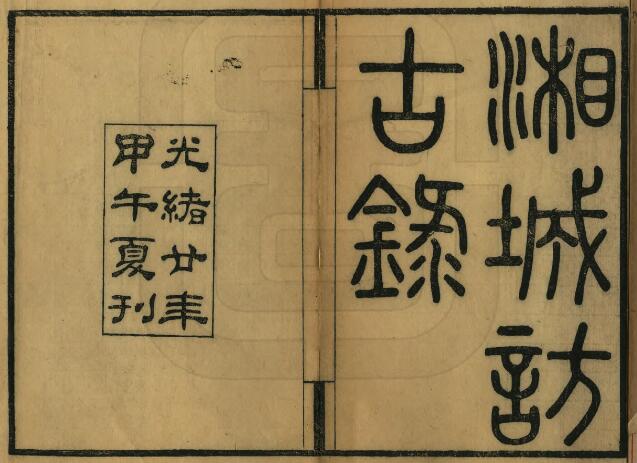 湘城訪
古錄
光緒廿年
甲午夏刊